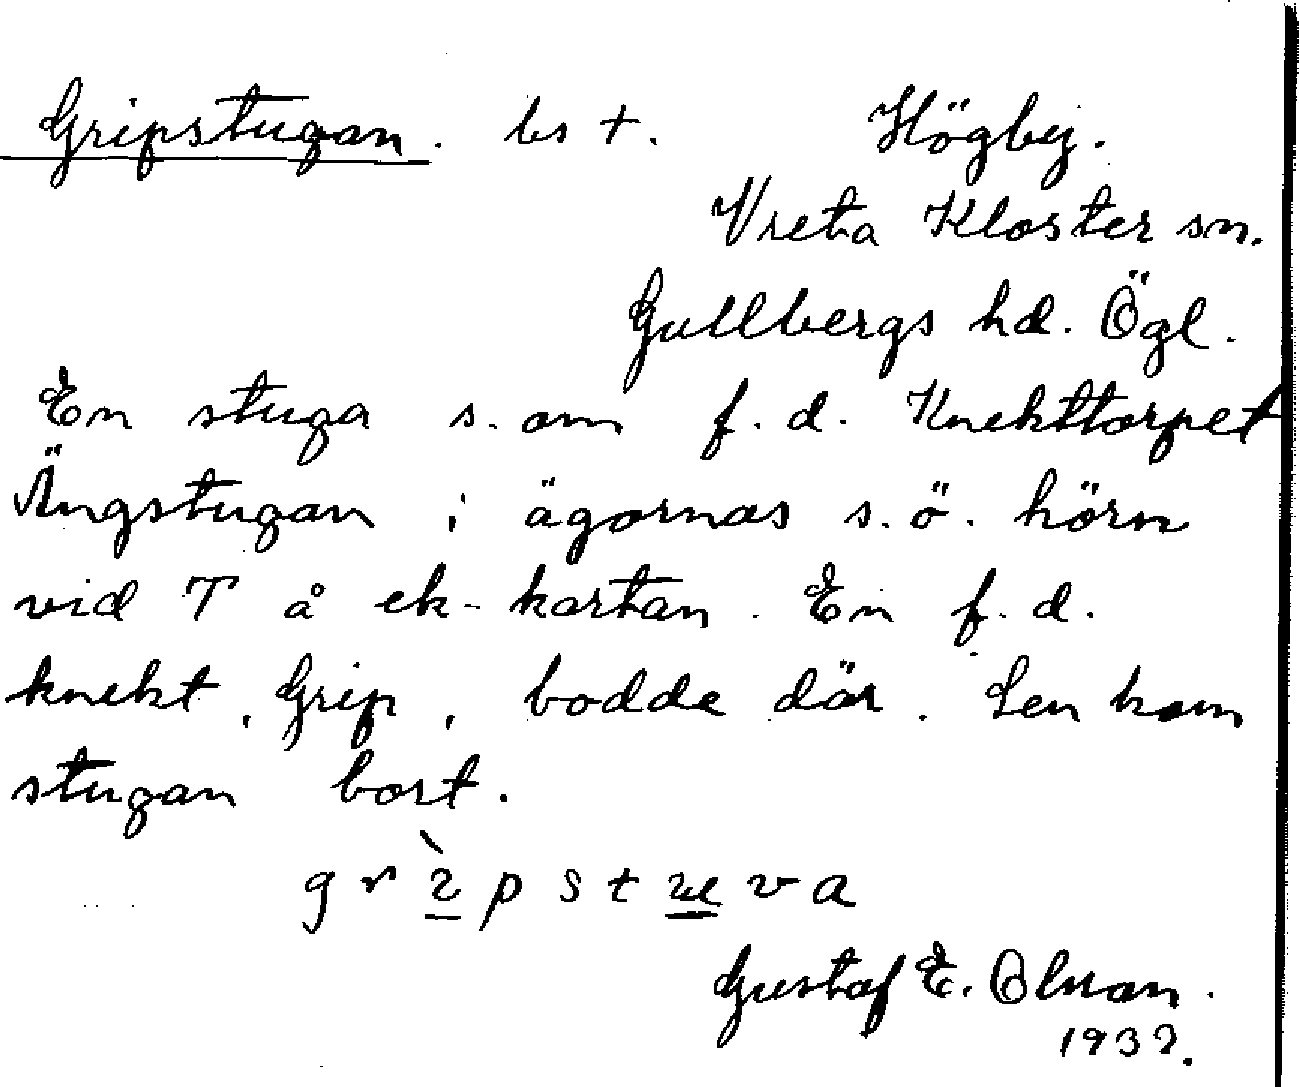 Gripstugan. bs +. Högby.
Vreta Kloster sn.
Gullbergs hd. Ögl.
En stuga s. om f. d. Knekttorpet
Ängstugan i ägornas s. ö. hörn
vid T å ek-kartan. En f. d.
knekt, Grip, bodde där. Sen kom
stugan bort.
grìpstuva
Gustaf E. Olman.
1932.